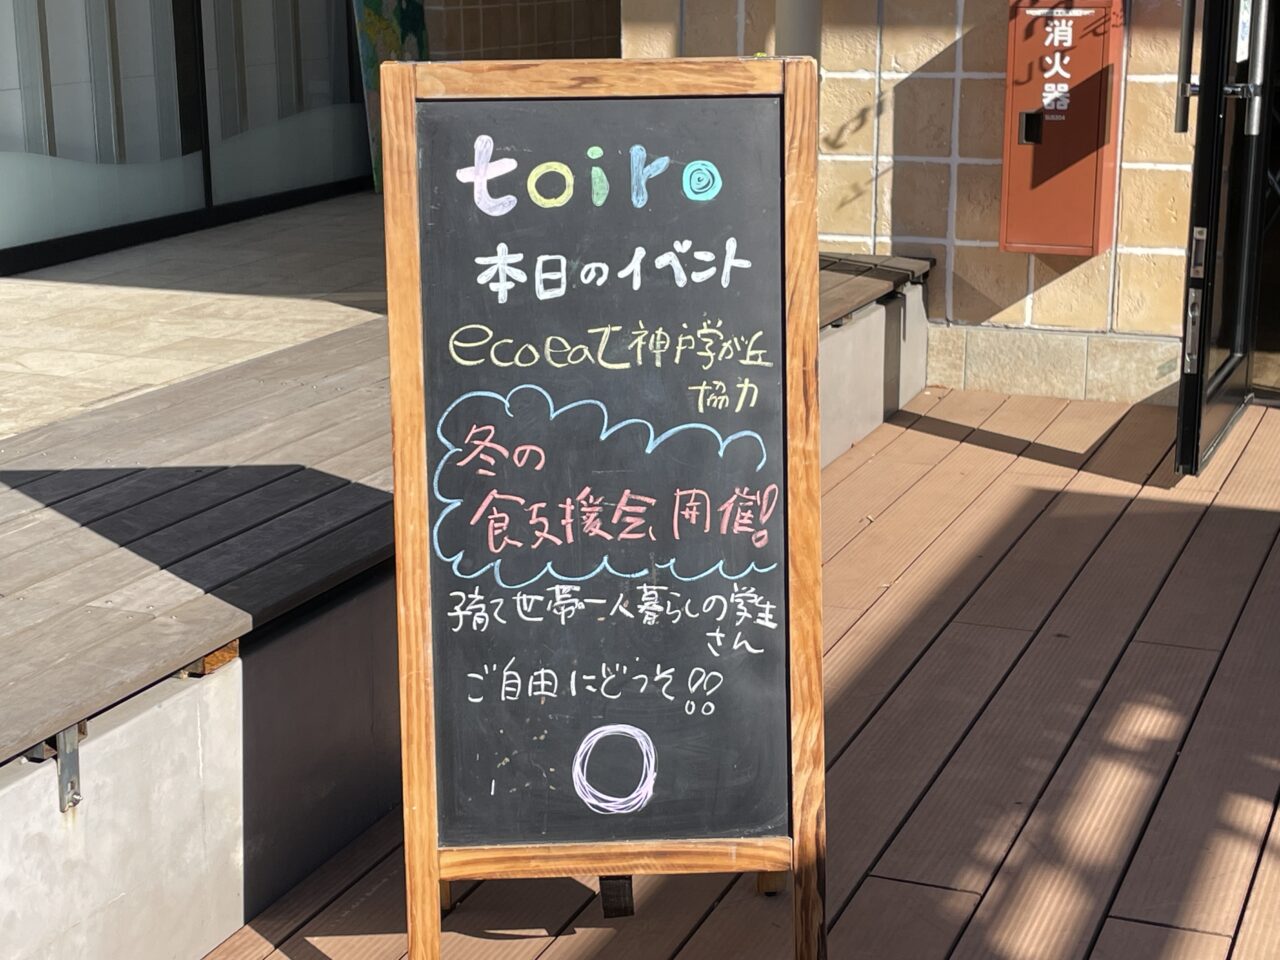 toiro
本日のイベント
ecoeat神戸学が丘
協力
冬の
食支援会開催!
子育て世帯・一人暮らしの学生
さん
ご自由にどうぞ!!
消火器